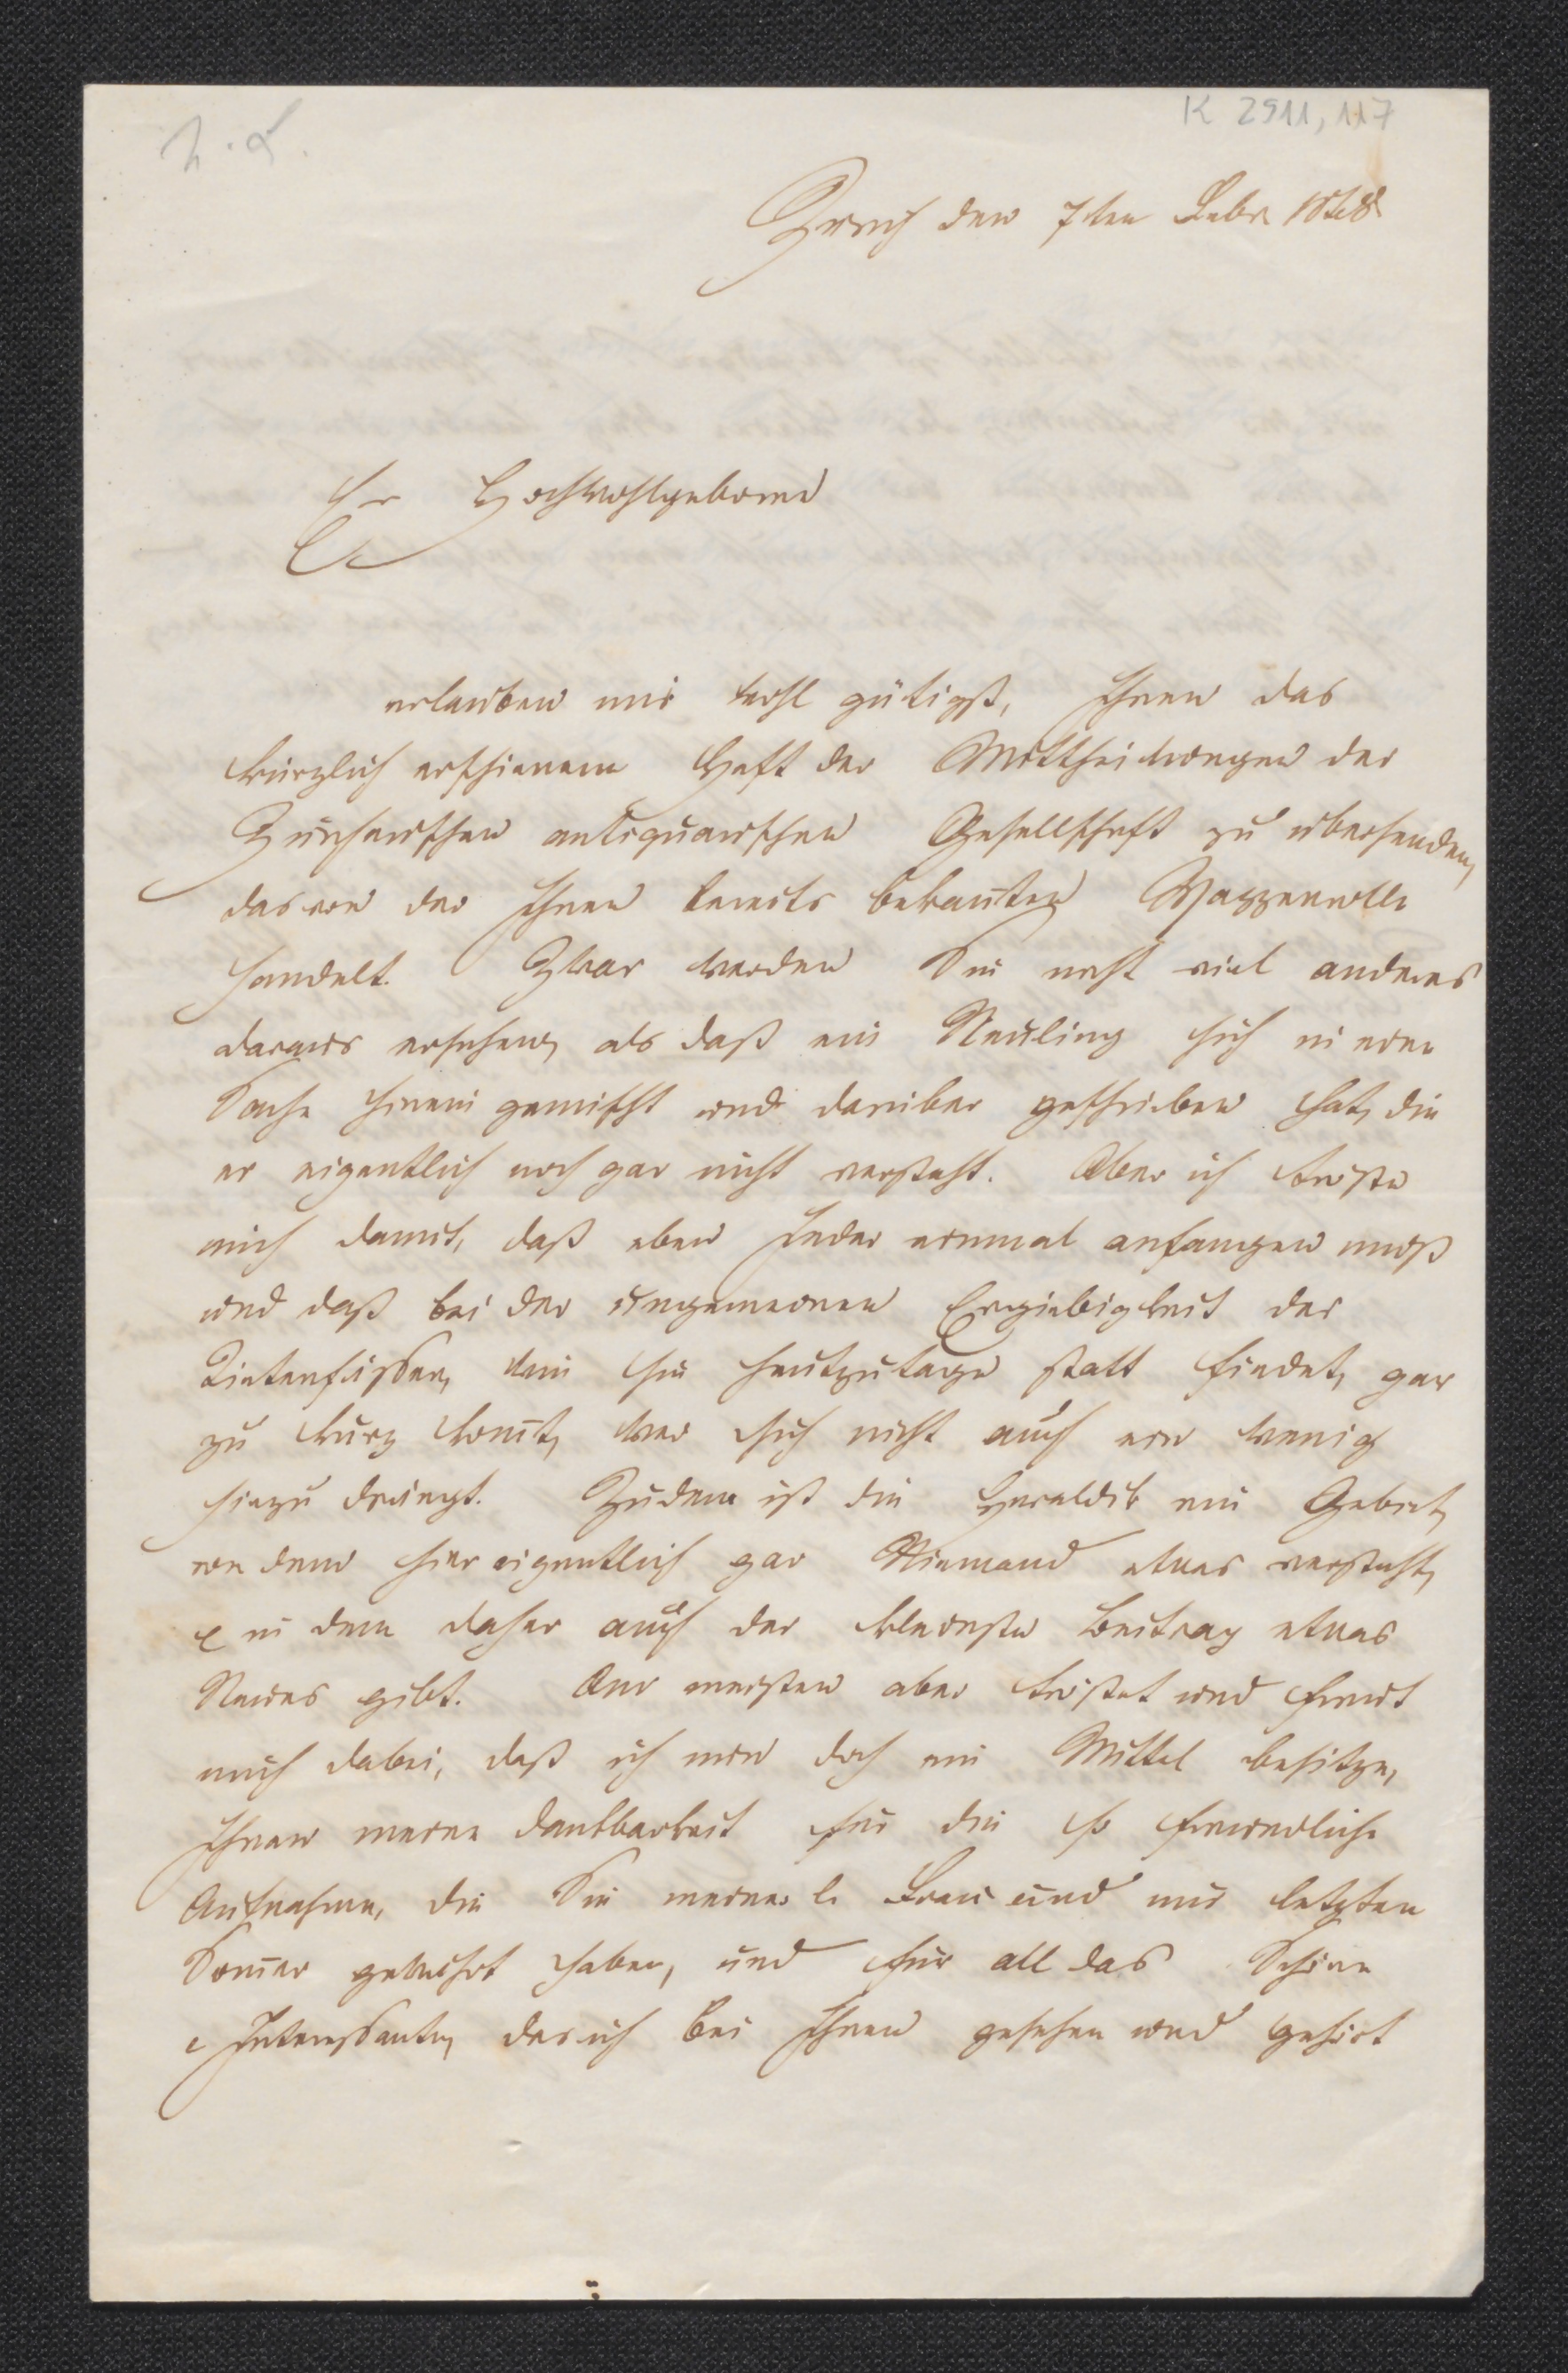 K 2911, 117
Zürich den 7ten Febr 1848
Ew Hochwohlgeboren
erlauben mir wohl gütigst, Ihnen das
kürzlich erschienene Heft der Mittheilungen der
Zürcherischen antiquarischen Gesellschaft zu übersenden,
das von der Ihnen bereits bekañten Wappenrolle
handelt. Zwar werden Sie nicht viel anderes
daraus ersehen, als daß ein Neuling sich in eine
Sache hinein gemischt und darüber geschrieben hat, die
er eigentlich noch gar nicht versteht. Aber ich tröste
mich damit, daß eben Jeder einmal anfangen muß
und daß bei der ungemeinen Ergiebigkeit der
Tintenfässer, wie sie heutzutage statt findet, gar
zu kurz kom̄t, wer sich nicht auch ein wenig
hinzu drängt. Zudem ist die Heraldik ein Gebiet,
von dem hier eigentlich gar Niemand etwas versteht,
& in dem daher auch der kleinste Beitrag etwas
Neues gibt. Am meisten aber tröstet und freut
mich dabei, daß ich nun doch ein Mittel besitze,
Ihnen meine Dankbarkeit für die so freundliche
Aufnahme, die Sie meiner l. Frau und mir letzten
Som̄er gewährt haben, und für all das Schöne
& Interessante, das ich bei Ihnen gesehen und gehört